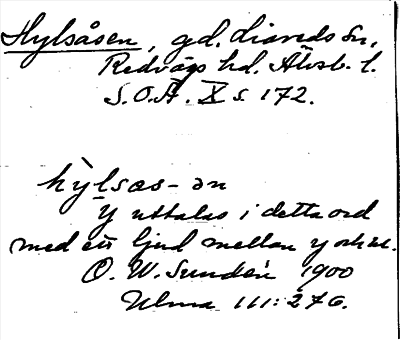 Hylsåsen, gd. Liareds sn,
Redvägs hd. Älvsb. l.
S.O.Ä. X s. 172.
hỳlsas-ən
y uttalas i detta ord
med ett ljud mellan y och u.
O. W. Sundén 1900
Ulma 111:276.